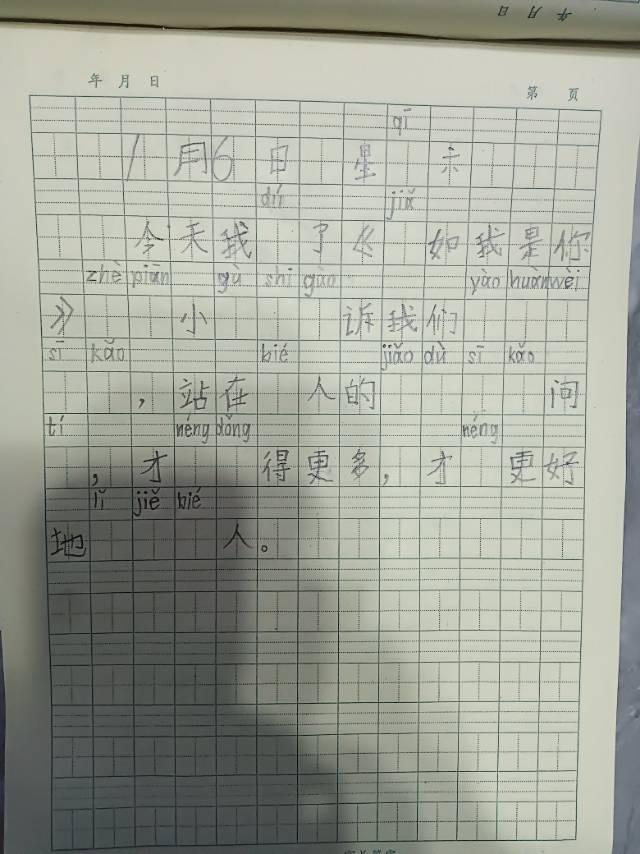 年 月 日
年 月 日
第 页
qī
1月6日 星 六
dú jiǎ
今天我 了《 如我是你
zhè piān gù shi gào yào huàn wèi
》 小 诉我们
sī kǎo bié jiǎo dù sī kǎo
，站在 人的 问
tí néng dǒng néng
，才 得更多，才 更好
lǐ jiě bié
地 人。